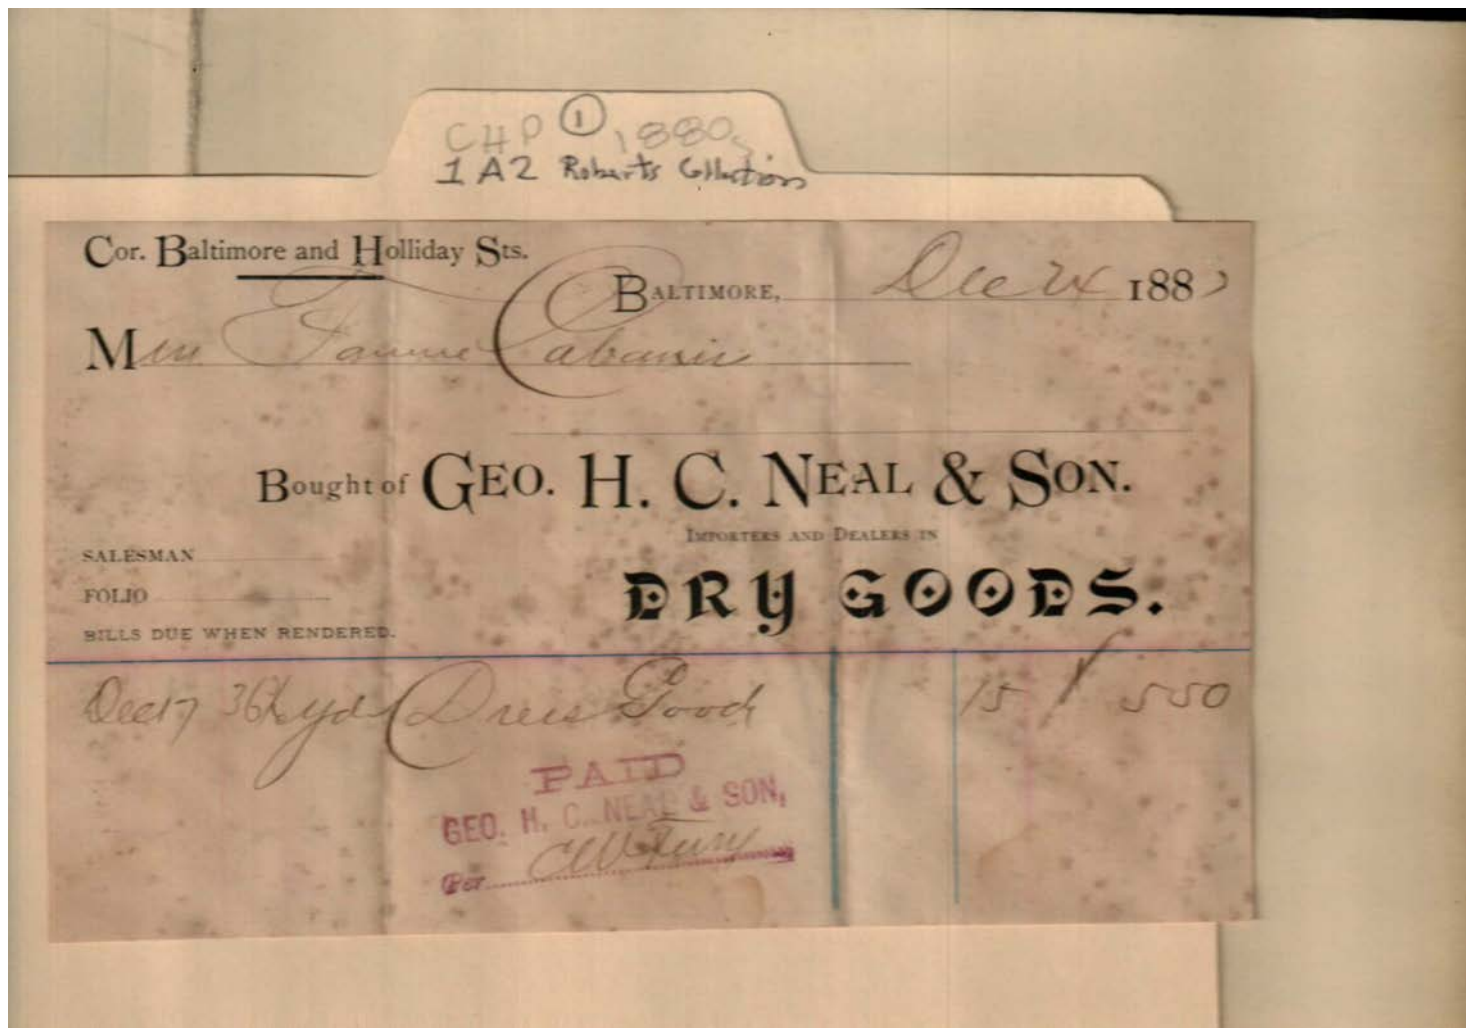 CHP ① 1880s
1A2 Roberts Collection
Cor. Baltimore and Holliday Sts.
BALTIMORE, Dec 24 188
Miss Fannie Cabanis
Bought of GEO. H. C. NEAL & SON.
IMPORTERS AND DEALERS IN
SALESMAN
DRY GOODS.
FOLIO
BILLS DUE WHEN RENDERED.
Dec 17 36⅔ yds Dress Goods 15 5 50
PAID
GEO. H. C. NEAL & SON,
Per